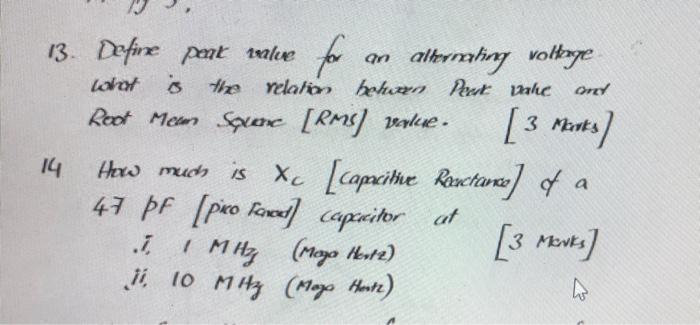 13. Define peak value for an alternating voltage.
What is the relation between Peak value and
Root Mean Square [RMS] value. [3 Marks]
14 How much is Xc [capacitive Reactance] of a
47 pF [pico Farad] capacitor at
i, 1 MHz (Mega Hertz) [3 Marks]
ii, 10 MHz (Mega Hertz)